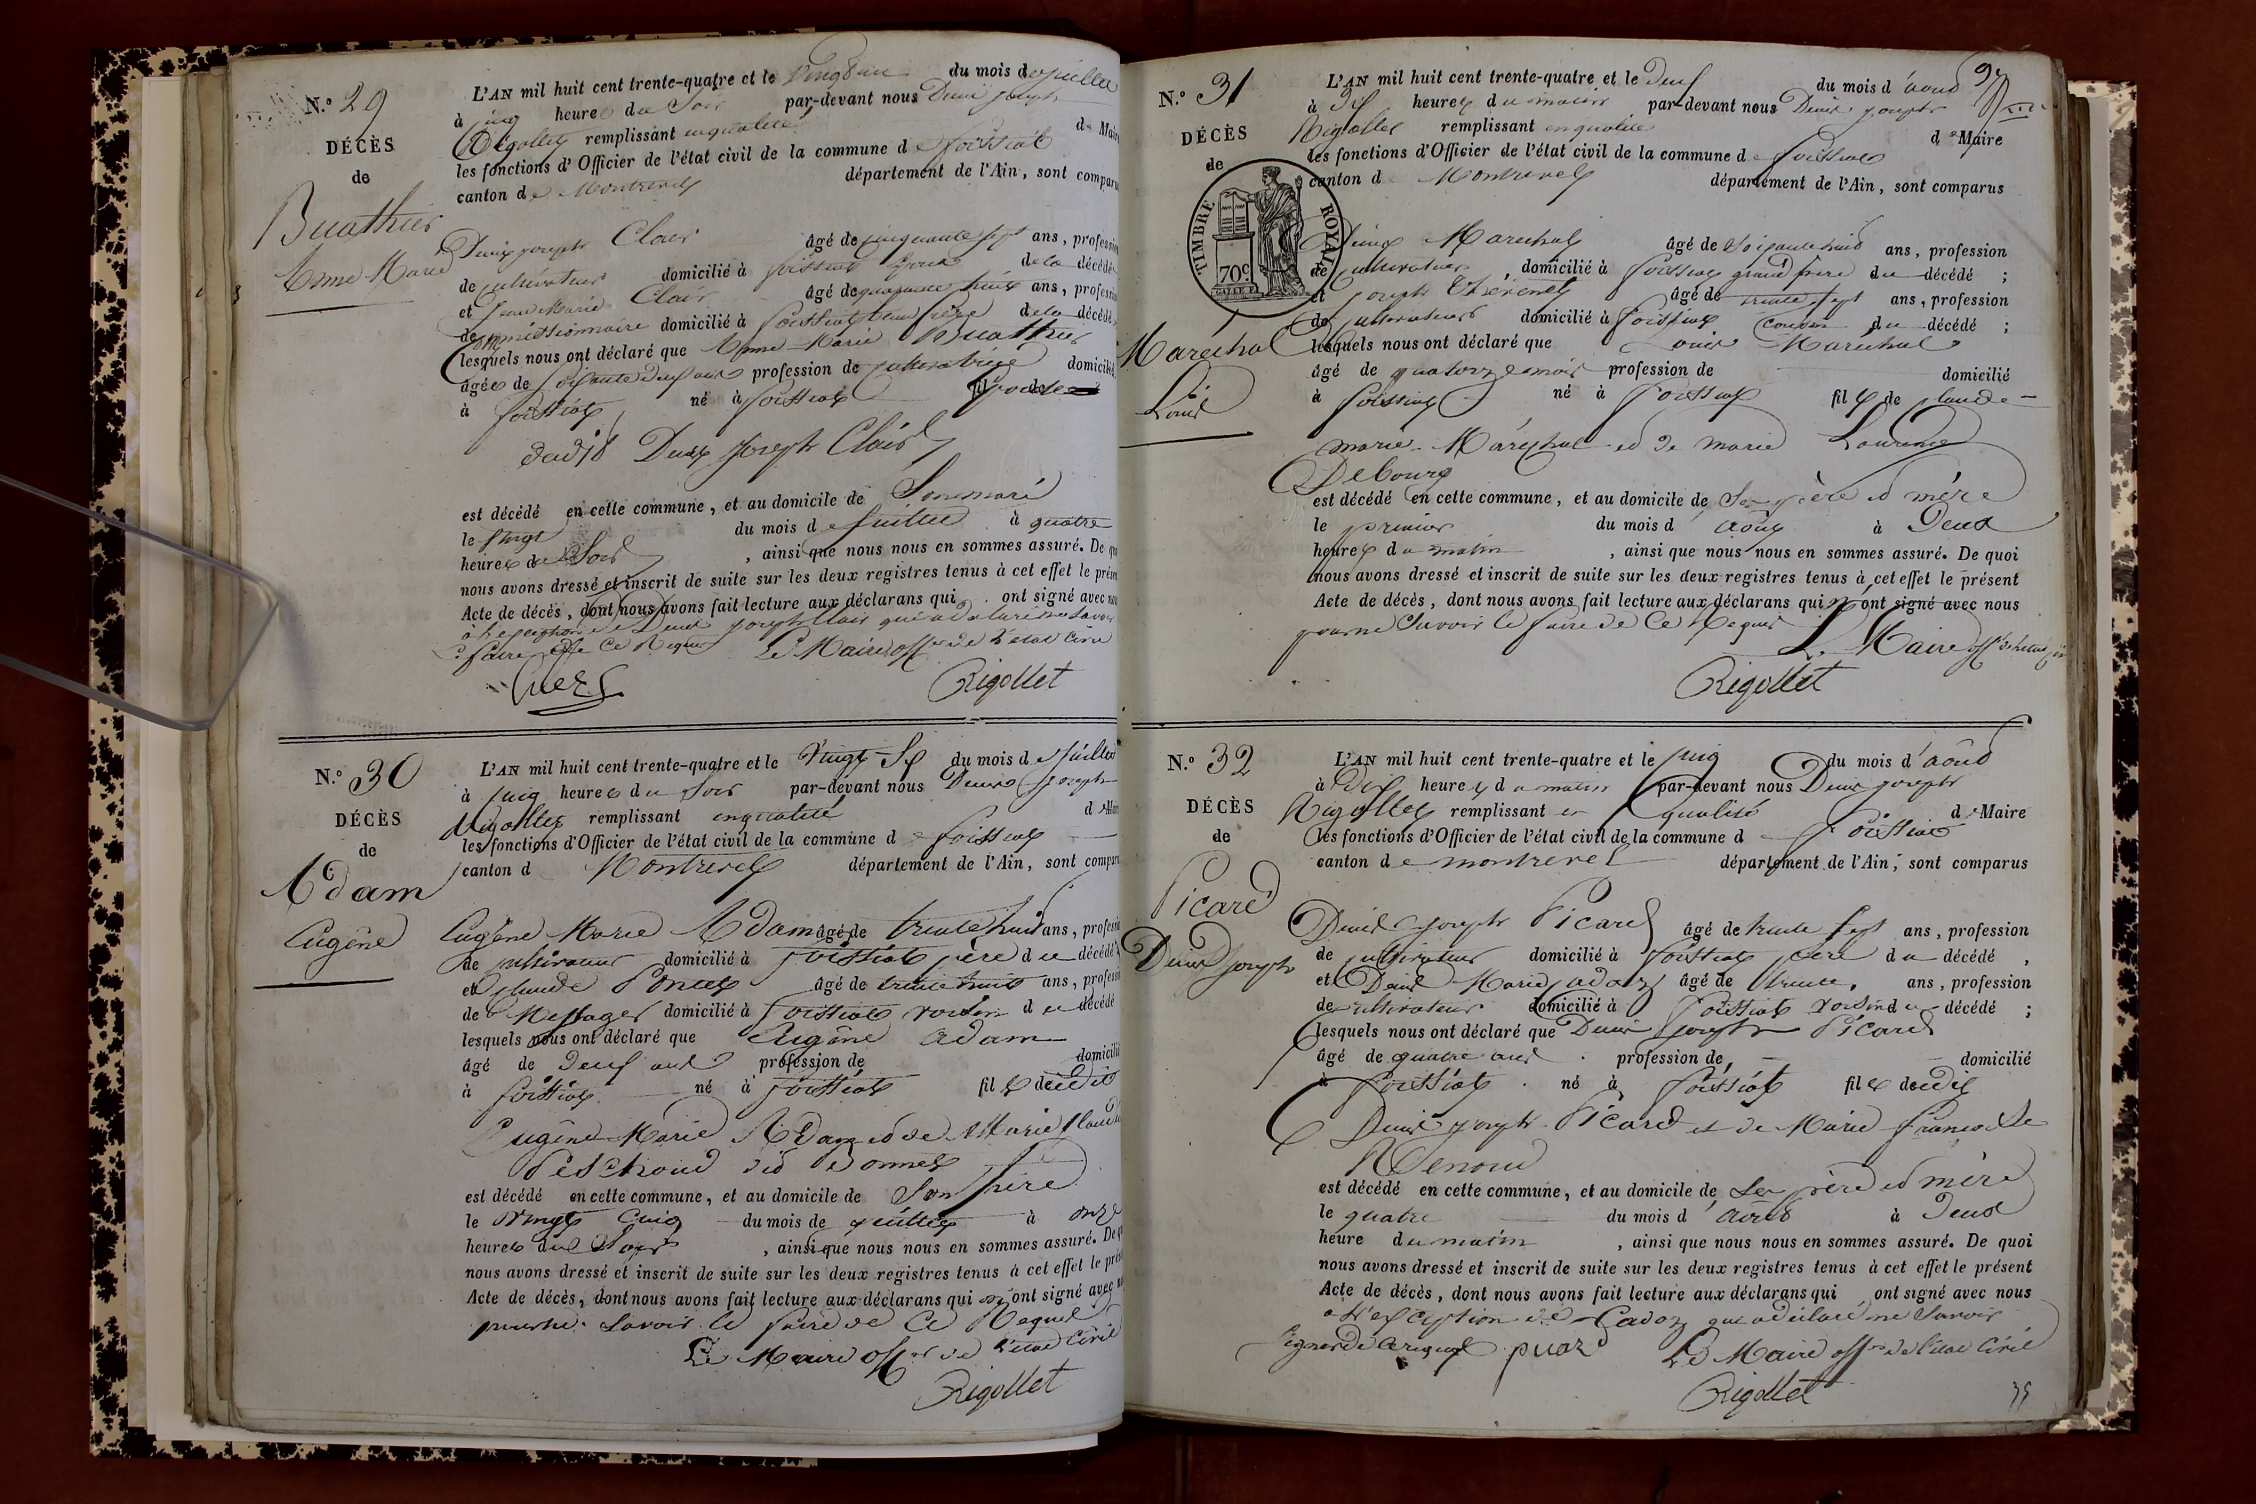 N.º 29
DÉCÈS
de
Buathier
Anne Marie
L'AN mil huit cent trente-quatre et le vingt un du mois de juillet
à cinq heures du Soir par-devant nous Denis joseph
Rigollet remplissant en qualité de Maire
les fonctions d'Officier de l'état civil de la commune de foissiat
canton de Montrevel département de l'Ain, sont comparus
Denis joseph Clair âgé de cinquante sept ans, profession
de cultivateur domicilié à foissiat époux de la décédée
et jean Marie Clair âgé de quarante huit ans, profession
de Commissionnaire domicilié à foissiat beau frère de la décédée
lesquels nous ont déclaré que Anne Marie Buathier
âgée de soixante deux ans profession de cultivatrice domicilié
à foissiat né à foissiat épouse
dudit Denis joseph Clair
est décédé en cette commune, et au domicile de Son mari
le vingt du mois de juillet à quatre
heures du Soir, ainsi que nous nous en sommes assuré. De quoi
nous avons dressé et inscrit de suite sur les deux registres tenus à cet effet le présent
Acte de décès, dont nous avons fait lecture aux déclarans qui ont signé avec nous
à l'exception de Denis joseph Clair qui a déclaré ne savoir
le faire de ce Requis Le Maire off.er de l'état civil
Rigollet
N.º 30
DÉCÈS
de
Adam
Eugène
L'AN mil huit cent trente-quatre et le vingt Six du mois de juillet
à cinq heures du Soir par-devant nous Denis joseph
Rigollet remplissant en qualité de Maire
les fonctions d'Officier de l'état civil de la commune de foissiat
canton d Montrevel département de l'Ain, sont comparus
Eugène Marie Adam âgé de trente huit ans, profession
de cultivateur domicilié à foissiat père du décédé
et claude Poncet âgé de trente huit ans, profession
de Messager domicilié à foissiat voisin du décédé
lesquels nous ont déclaré que Eugène Adam
âgé de Deux ans profession de domicilié
à foissiat né à foissiat fils dudit
Eugène Marie Adam et de Marie Claudine
Peschoud dit Donnet
est décédé en cette commune, et au domicile de Son père
le vingt Cinq du mois de juillet à onze
heures du Soir, ainsi que nous nous en sommes assuré. De quoi
nous avons dressé et inscrit de suite sur les deux registres tenus à cet effet le présent
Acte de décès, dont nous avons fait lecture aux déclarans qui n'ont signé avec nous
pour ne Savoir le faire de Ce Requis
Le Maire off.er de l'état civil
Rigollet
N.º 31
DÉCÈS
de
TIMBRE ROYAL
70c
Maréchal
Louis
L'AN mil huit cent trente-quatre et le deux du mois d'août
à dix heures du matin par-devant nous Denis joseph
Rigollet remplissant en qualité de Maire
les fonctions d'Officier de l'état civil de la commune de foissiat
canton d Montrevel département de l'Ain, sont comparus
Denis Maréchal âgé de soixante huit ans, profession
de cultivateur, domicilié à foissiat grand père du décédé;
et joseph Thévenet âgé de trente sept ans, profession
de cultivateur domicilié à foissiat cousin du décédé;
lesquels nous ont déclaré que Louis Maréchal
âgé de quatorze mois profession de domicilié
à foissiat né à foissiat fils de claude
marie Maréchal et de marie Laurence
Debourg
est décédé en cette commune, et au domicile de Son père et mère
le premier du mois d'août à Deux
heures du matin, ainsi que nous nous en sommes assuré. De quoi
nous avons dressé et inscrit de suite sur les deux registres tenus à cet effet le présent
Acte de décès, dont nous avons fait lecture aux déclarans qui n'ont signé avec nous
pour ne Savoir le faire de Ce Requis
Le Maire off.er de l'état civil
Rigollet
N.º 32
DÉCÈS
de
Picard
Denis joseph
L'AN mil huit cent trente-quatre et le cinq du mois d'août
à Dix heures du matin par-devant nous Denis joseph
Rigollet remplissant en qualité de Maire
les fonctions d'Officier de l'état civil de la commune d foissiat
canton de montrevel département de l'Ain, sont comparus
Denis joseph Picard âgé de trente sept ans, profession
de cultivateur domicilié à foissiat père du décédé,
et Denis Marie Cadoz âgé de trente, ans, profession
de cultivateur domicilié à foissiat voisin du décédé;
lesquels nous ont déclaré que Denis joseph Picard
âgé de quatre ans profession de domicilié
à foissiat né à foissiat fils dudit
Denis joseph Picard et de Marie françoise
Renoud
est décédé en cette commune, et au domicile de Ses père et mère
le quatre du mois d'août à Deux
heure du matin, ainsi que nous nous en sommes assuré. De quoi
nous avons dressé et inscrit de suite sur les deux registres tenus à cet effet le présent
Acte de décès, dont nous avons fait lecture aux déclarans qui ont signé avec nous
à l'exception de Cadoz qui a déclaré ne Savoir
Signer de ce requis Le Maire off.er de l'état civil
Rigollet